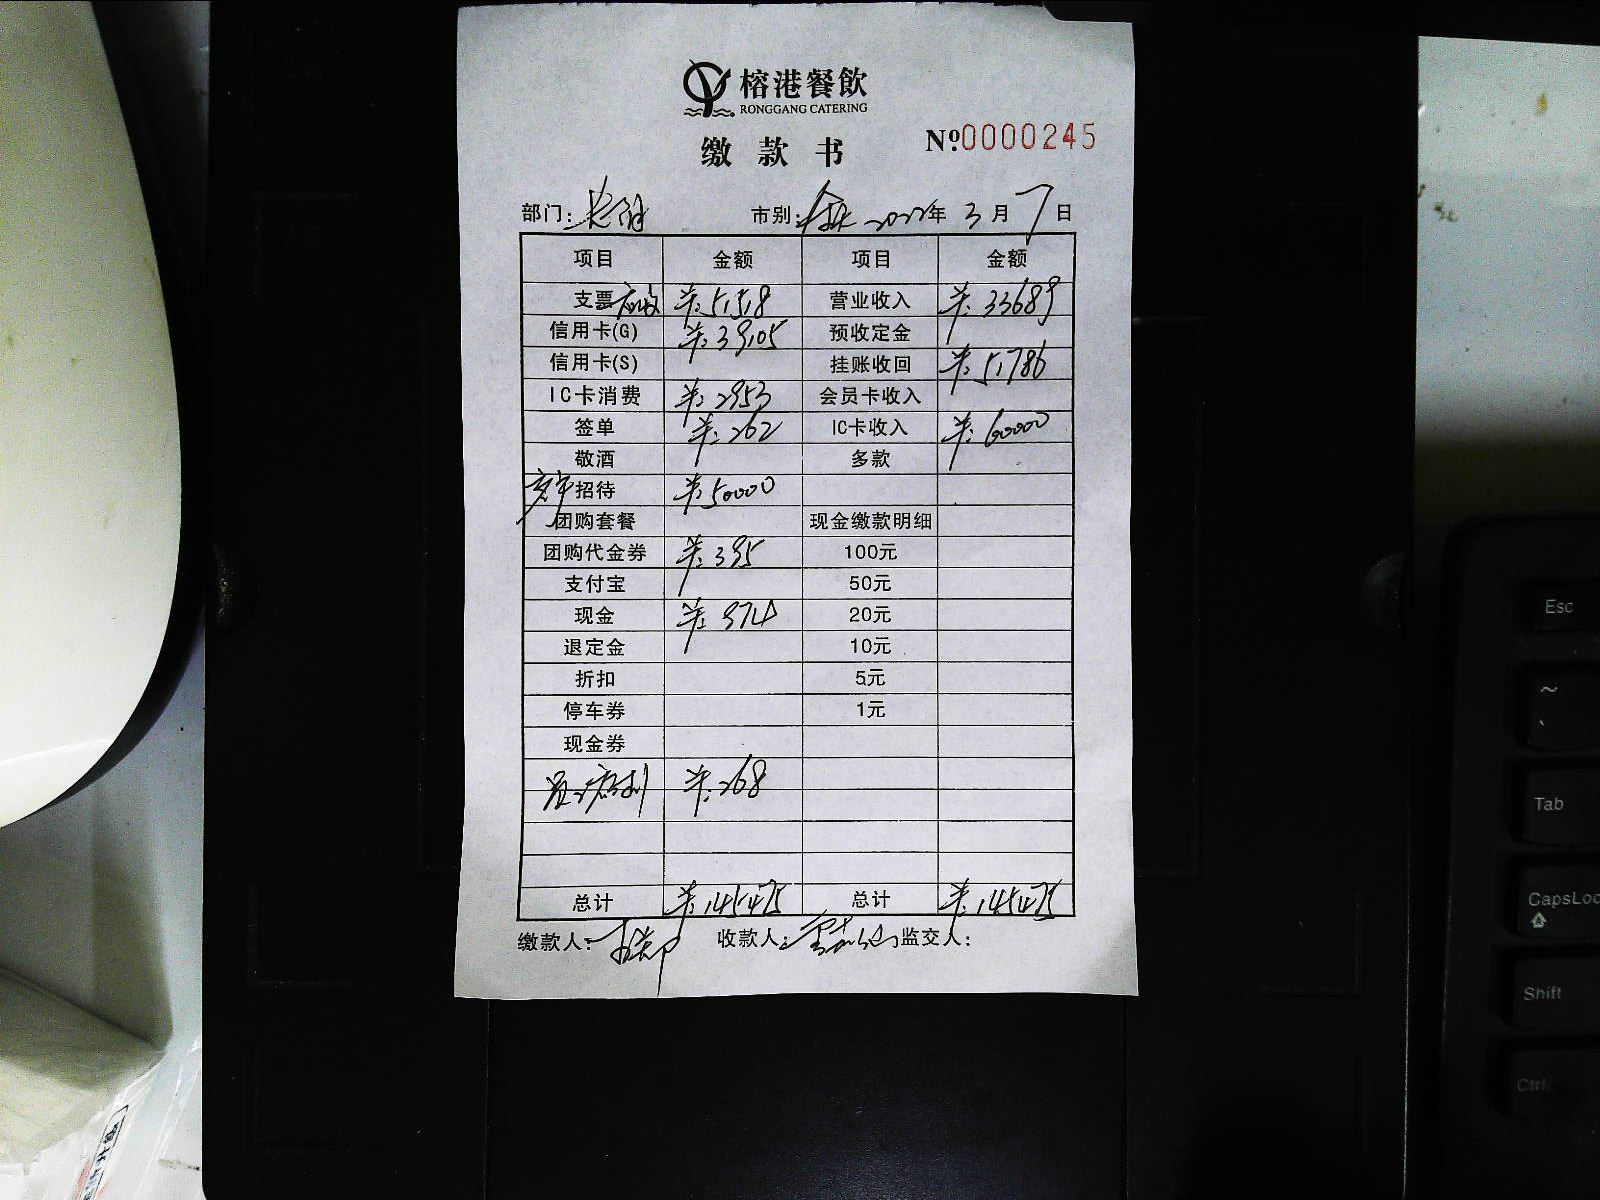 榕港餐飲
RONGGANG CATERING
缴款书
Nº:0000245
部门: 市别: 2022年 3月 7日
项目 金额 项目 金额
支票 应收 ¥:51518 营业收入 ¥:33689
信用卡(G) ¥:39105 预收定金
信用卡(S) 挂账收回 ¥:51786
IC卡消费 ¥:2953 会员卡收入
签单 ¥:262 IC卡收入 ¥:60000
敬酒 多款
招待 ¥:50000
团购套餐 现金缴款明细
团购代金券 ¥:395 100元
支付宝 50元
现金 ¥:974 20元
退定金 10元
折扣 5元
停车券 1元
现金券
¥:268
总计 ¥:145475 总计 ¥:145475
缴款人: 收款人: 监交人:
Esc
~
`
Tab
CapsLoc
Shift
Ctrl